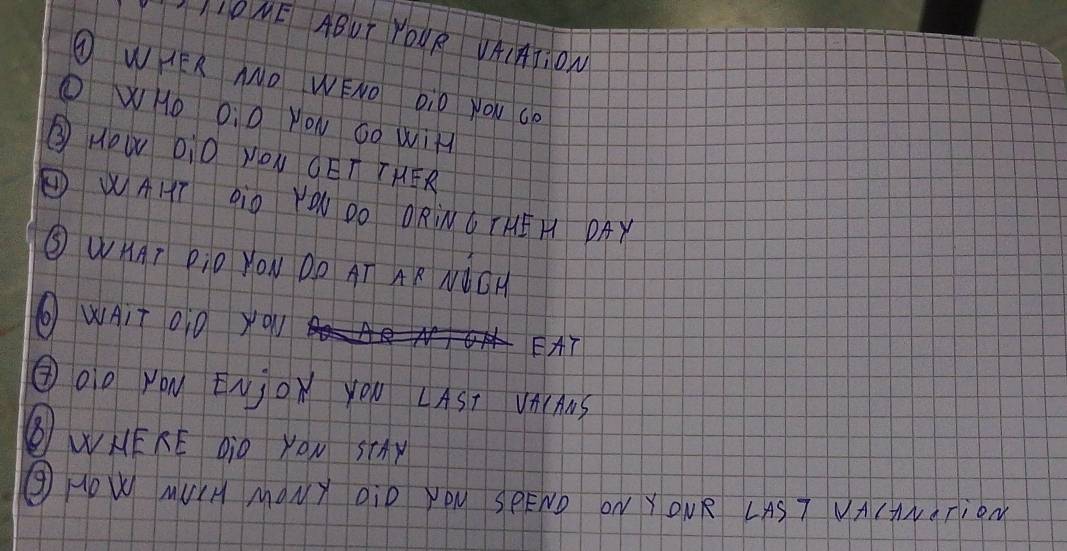 ABUT YOUR VACATION
① WHER AND WEND DID YOU GO
② WHO DID YOU GO WIH
③ HOW DID YOU GET THER
④ WAHT DID YOU DO DRING THEH DAY
⑤ WHAT DID YOU DO AT AR NIGH
⑥ WAIT DID YOU EAT
⑦ DID YOU ENJOY YOU LAST VACANS
⑧ WHERE DID YOU STAY
⑨ HOW MUCH MONY DID YOU SPEND ON YOUR LAST